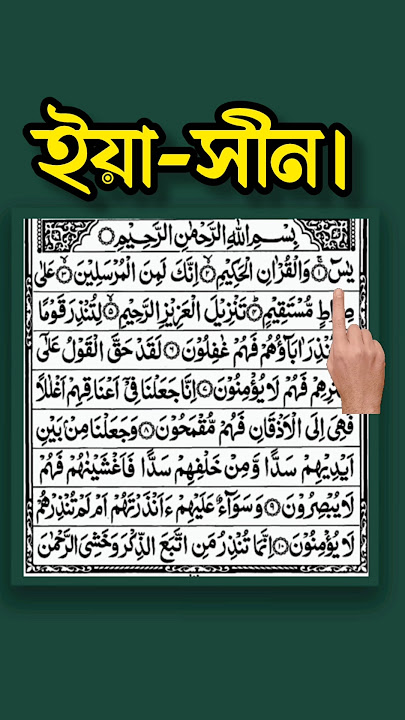 ইয়া-সীন।
بِسْمِ اللهِ الرَّحْمٰنِ الرَّحِيْمِ
يٰسٓ ۝١ وَالْقُرْاٰنِ الْحَكِيْمِ ۝٢ اِنَّكَ لَمِنَ الْمُرْسَلِيْنَ ۝٣ عَلٰى
مُّسْتَقِيْمٍ ۝٤ تَنْزِيْلَ الْعَزِيْزِ الرَّحِيْمِ ۝٥ لِتُنْذِرَ قَوْمًا
اٰبَآؤُهُمْ فَهُمْ غٰفِلُوْنَ ۝٦ لَقَدْ حَقَّ الْقَوْلُ عَلٰٓى
فَهُمْ لَا يُؤْمِنُوْنَ ۝٧ اِنَّا جَعَلْنَا فِيْٓ اَعْنَاقِهِمْ اَغْلٰلًا
فَهِيَ اِلَى الْاَذْقَانِ فَهُمْ مُّقْمَحُوْنَ ۝٨ وَجَعَلْنَا مِنْۢ بَيْنِ
اَيْدِيْهِمْ سَدًّا وَّمِنْ خَلْفِهِمْ سَدًّا فَاَغْشَيْنٰهُمْ فَهُمْ
لَا يُبْصِرُوْنَ ۝٩ وَسَوَآءٌ عَلَيْهِمْ ءَاَنْذَرْتَهُمْ اَمْ لَمْ تُنْذِرْهُمْ
لَا يُؤْمِنُوْنَ ۝١٠ اِنَّمَا تُنْذِرُ مَنِ اتَّبَعَ الذِّكْرَ وَخَشِيَ الرَّحْمٰنَ